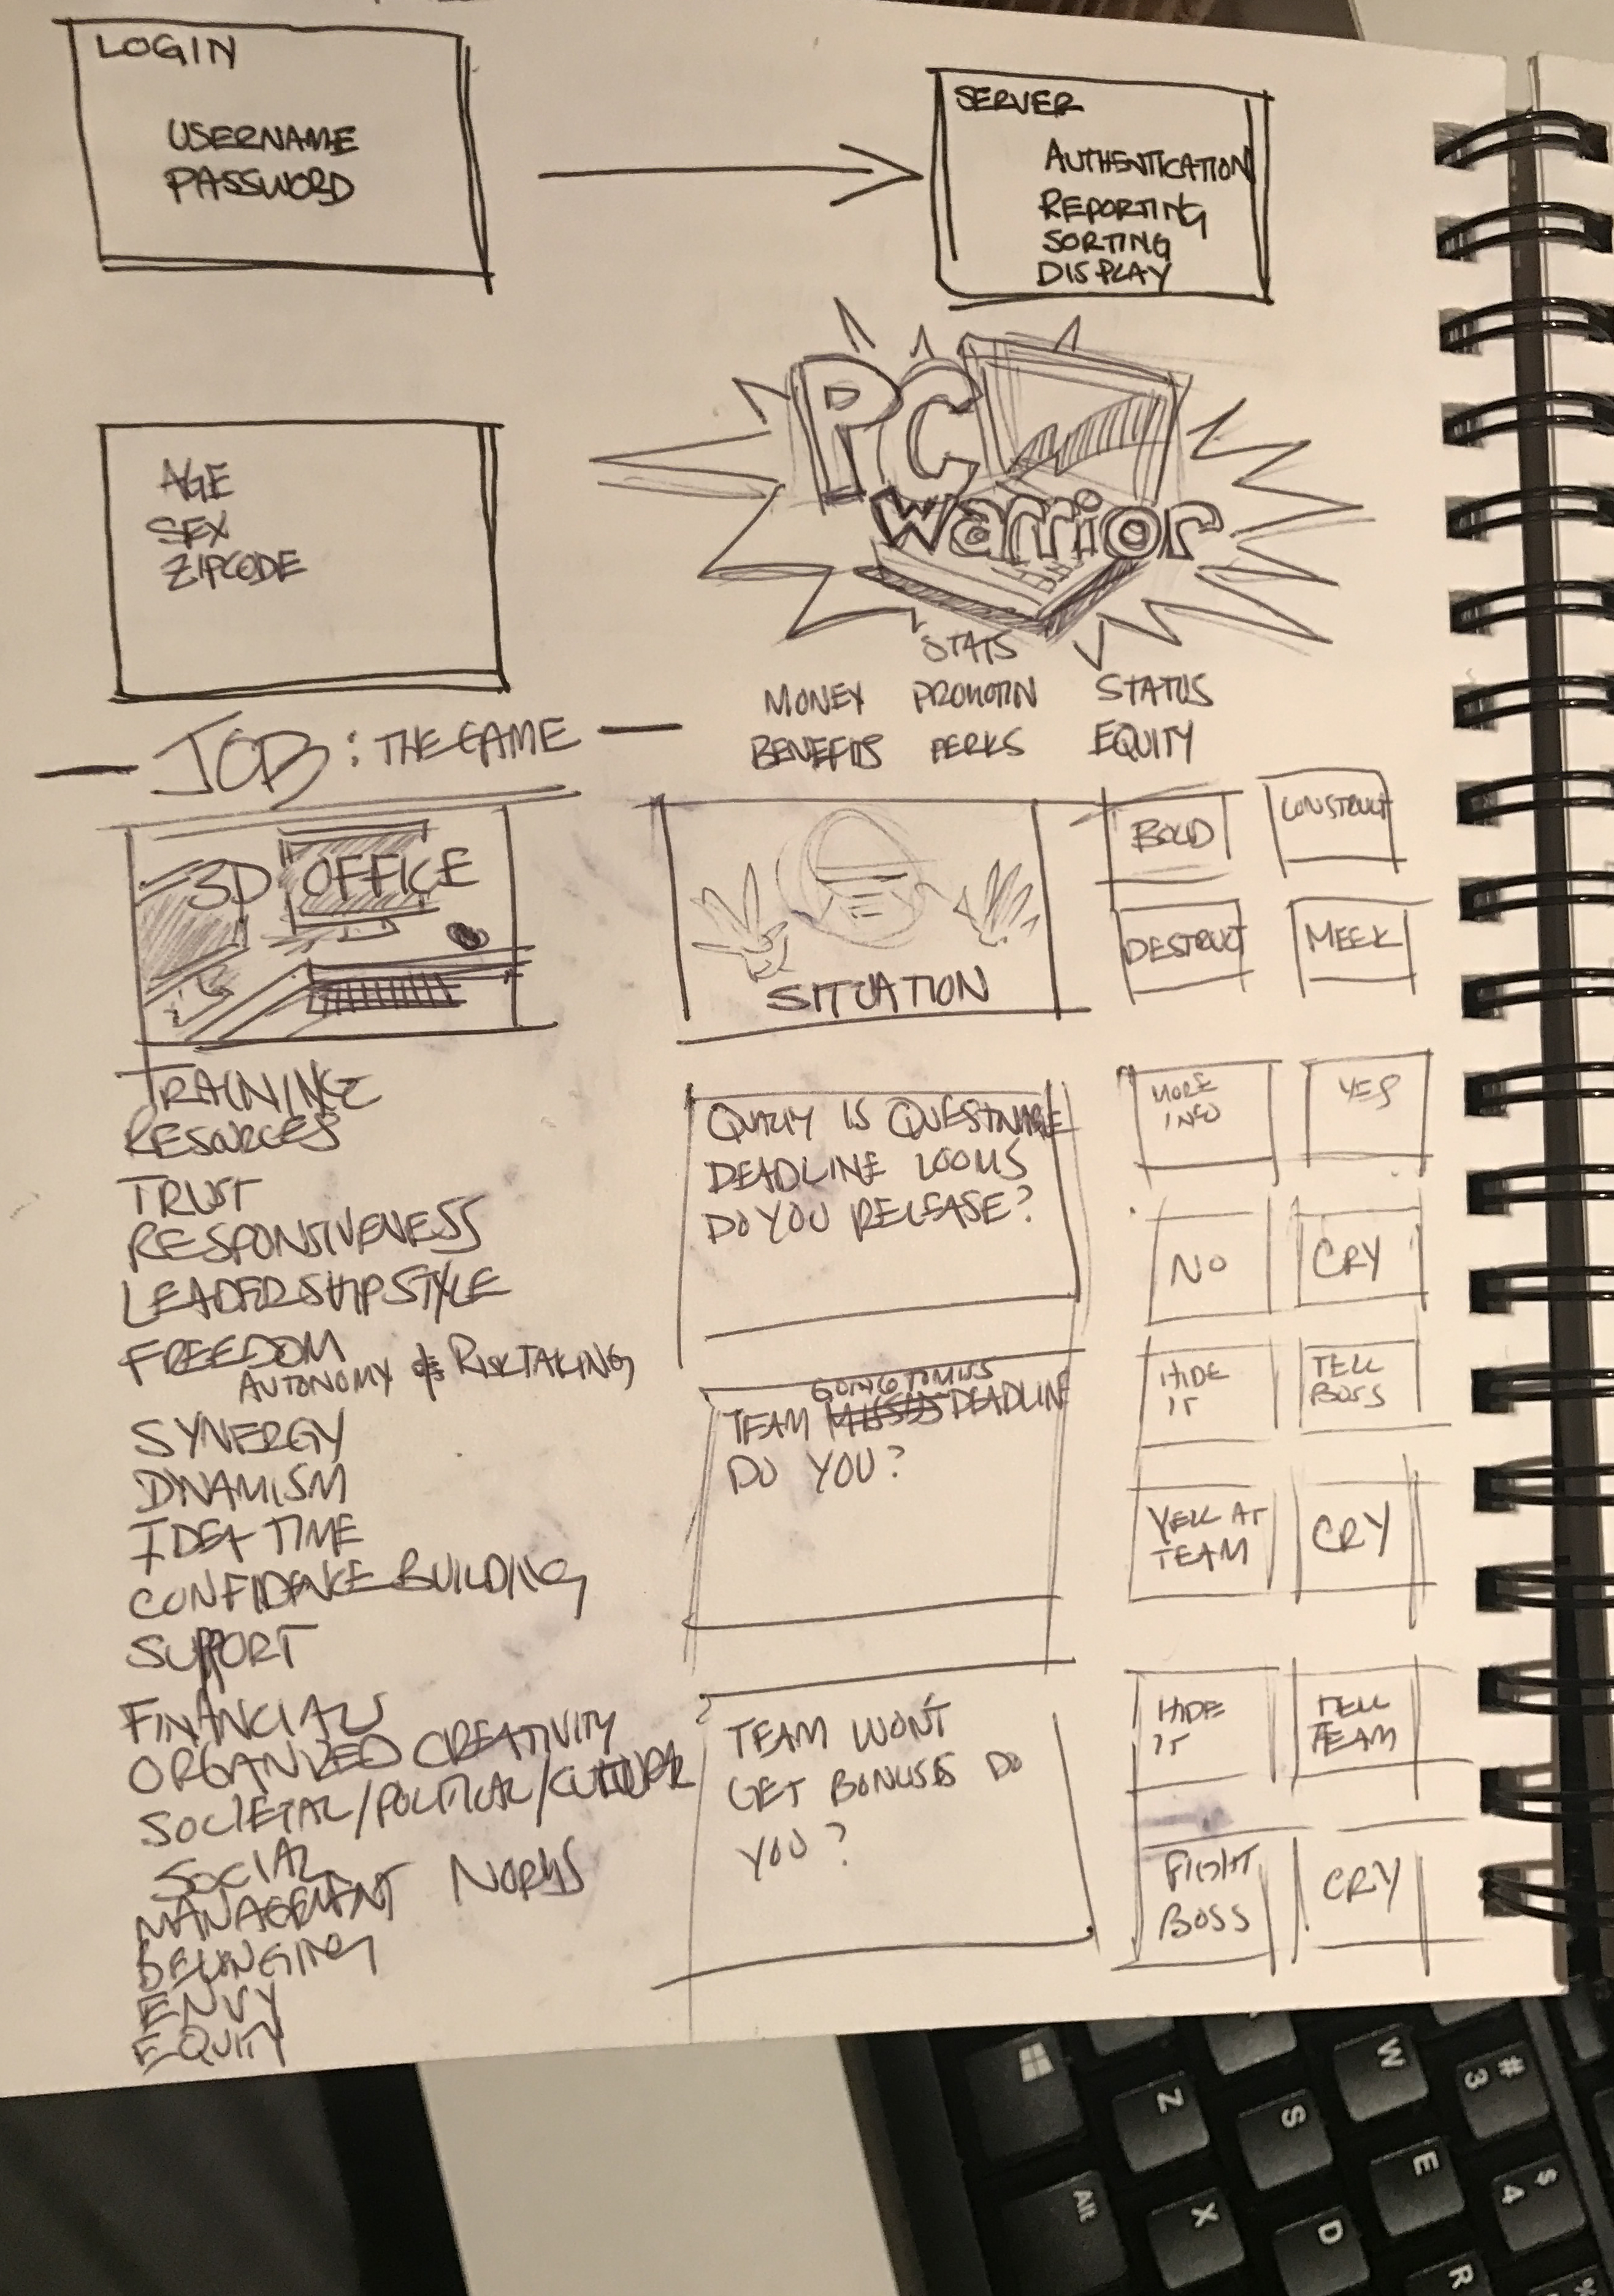 LOGIN
USERNAME
PASSWORD
SERVER
AUTHENTICATION
REPORTING
SORTING
DISPLAY
AGE
SEX
ZIPCODE
PC
warrior
STATS
MONEY PROMOTIN STATUS
BENEFITS PERKS EQUITY
JOB: THE GAME
3D OFFICE
SITUATION
BOLD
CONSTRUCT
DESTRUCT
MEEK
TRAINING
RESOURCES
TRUST
RESPONSIVENESS
LEADERSHIP STYLE
FREEDOM
AUTONOMY & RISKTAKING
SYNERGY
DYNAMISM
IDEA TIME
CONFIDENCE BUILDING
SUPPORT
FINANCIALS
ORGANIZED CREATIVITY
SOCIETAL/POLITICAL/CULTURAL
SOCIAL
MANAGEMENT NORMS
BELONGING
ENVY
EQUITY
QUALITY IS QUESTIONABLE
DEADLINE LOOMS
DO YOU RELEASE?
MORE
INFO
YES
NO
CRY
GOING TO MISS
TEAM MISSES DEADLINE
DO YOU?
HIDE
IT
TELL
BOSS
YELL AT
TEAM
CRY
TEAM WON'T
GET BONUSES DO
YOU?
HIDE
IT
TELL
TEAM
FIGHT
BOSS
CRY
W
#
3
Z
S
E
$
4
Alt
X
D
R